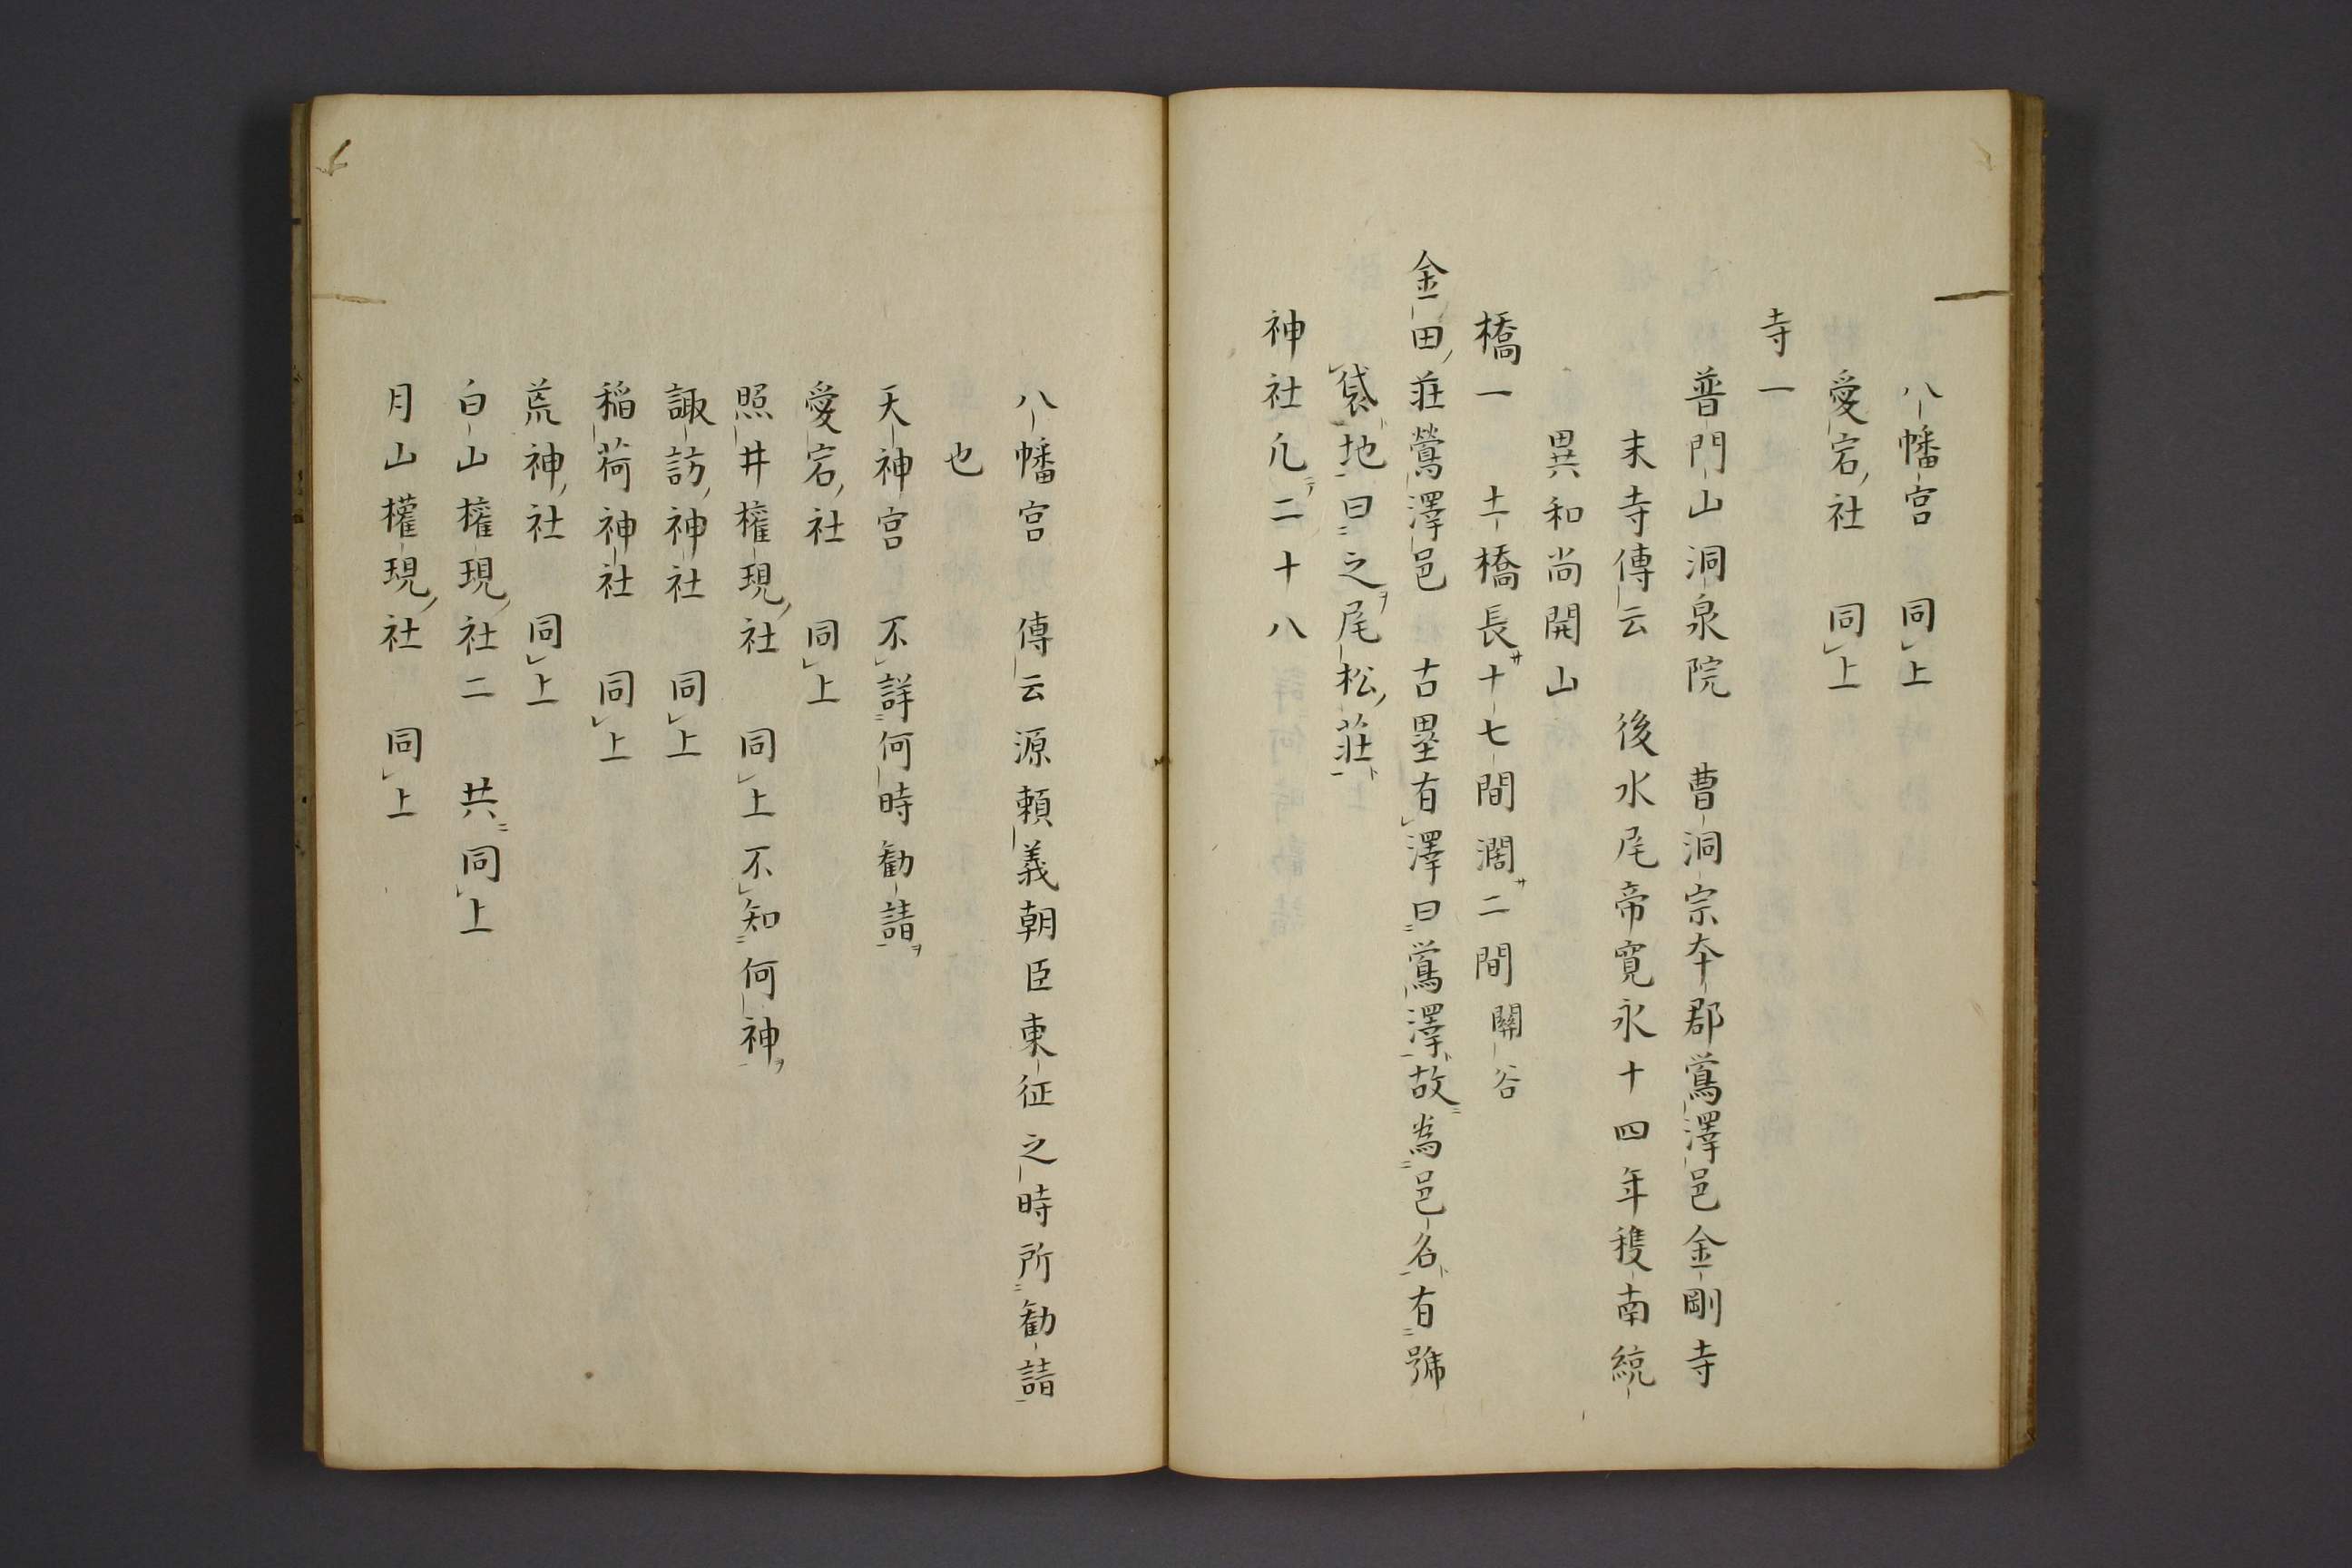 八幡宮 同上
愛宕社 同上
寺一
普門山洞泉院 曹洞宗夲郡鶯澤邑金剛寺
末寺傳云 後水尾帝寛永十四年穫南統
異和尚開山
橋一 土橋長十七間濶二間 關谷
金田莊鶯澤邑 古壘有澤曰鶯澤故為邑名有號
袋地曰之尾松莊
神社凡二十八
八幡宮 傳云源頼義朝臣東征之時所勧請
也
天神宮 不詳何時勧請
愛宕社 同上
照井權現社 同上不知何神
諏訪神社 同上
稲荷神社 同上
荒神社 同上
白山權現社二 共同上
月山權現社 同上